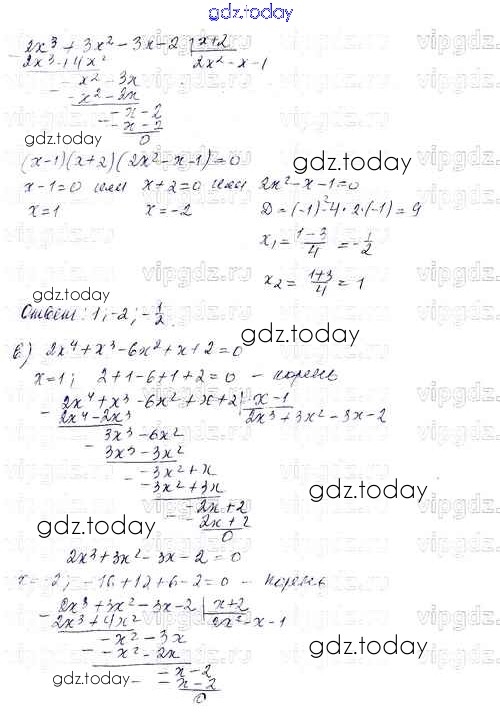 gdz.today
2x³ + 3x² - 3x - 2 | x+2
2x³ + 4x² 2x² - x - 1
- x² - 3x
- x² - 2x
- x - 2
- x - 2
0
gdz.today
(x-1)(x+2)(2x² - x - 1) = 0
gdz.today
x-1=0 или x+2=0 или 2x² - x - 1 = 0
x=1 x=-2 D=(-1)²-4·2·(-1)=9
x₁ = (1-3)/4 = -1/2
x₂ = (1+3)/4 = 1
gdz.today
Ответ: 1; -2; -1/2.
gdz.today
в) 2x⁴ + x³ - 6x² + x + 2 = 0
x=1; 2+1-6+1+2=0 - корень
- 2x⁴ + x³ - 6x² + x + 2 | x-1
2x⁴ - 2x³ 2x³ + 3x² - 3x - 2
3x³ - 6x²
- 3x³ - 3x²
- 3x² + x
- - 3x² + 3x
gdz.today
- 2x + 2
- - 2x + 2
0
gdz.today
2x³ + 3x² - 3x - 2 = 0
x=-2; -16+12+6-2=0 - корень
- 2x³ + 3x² - 3x - 2 | x+2
2x³ + 4x² 2x² - x - 1
- x² - 3x
- - x² - 2x
gdz.today
- x - 2
- - x - 2
0
gdz.today
vipgdz.ru